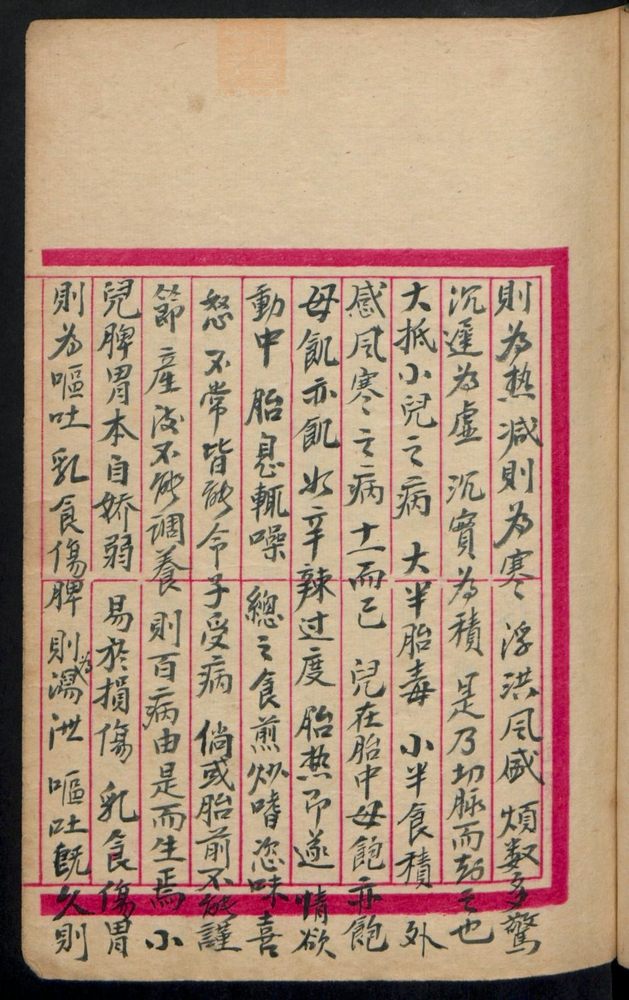 則为热減則为寒 浮洪风盛 煩数多驚
沉遲为虛 沉實为積 是乃切脉而知之也
大抵小兒之病 大半胎毒 小半食積 外
感风寒之病 十一而已 兒在胎中 母飽亦飽
母飢亦飢 如辛辣过度 胎热即遂 情欲
動中 胎息輒噪 總之食煎炒嗜恣味 喜
怒不常 皆能令子受病 倘或胎前不能謹
節 産後不能調養 則百病由是而生焉 小
兒脾胃本自娇弱 易於損傷 乳食傷胃
則为嘔吐 乳食傷脾 則为瀉泄 嘔吐旣久則